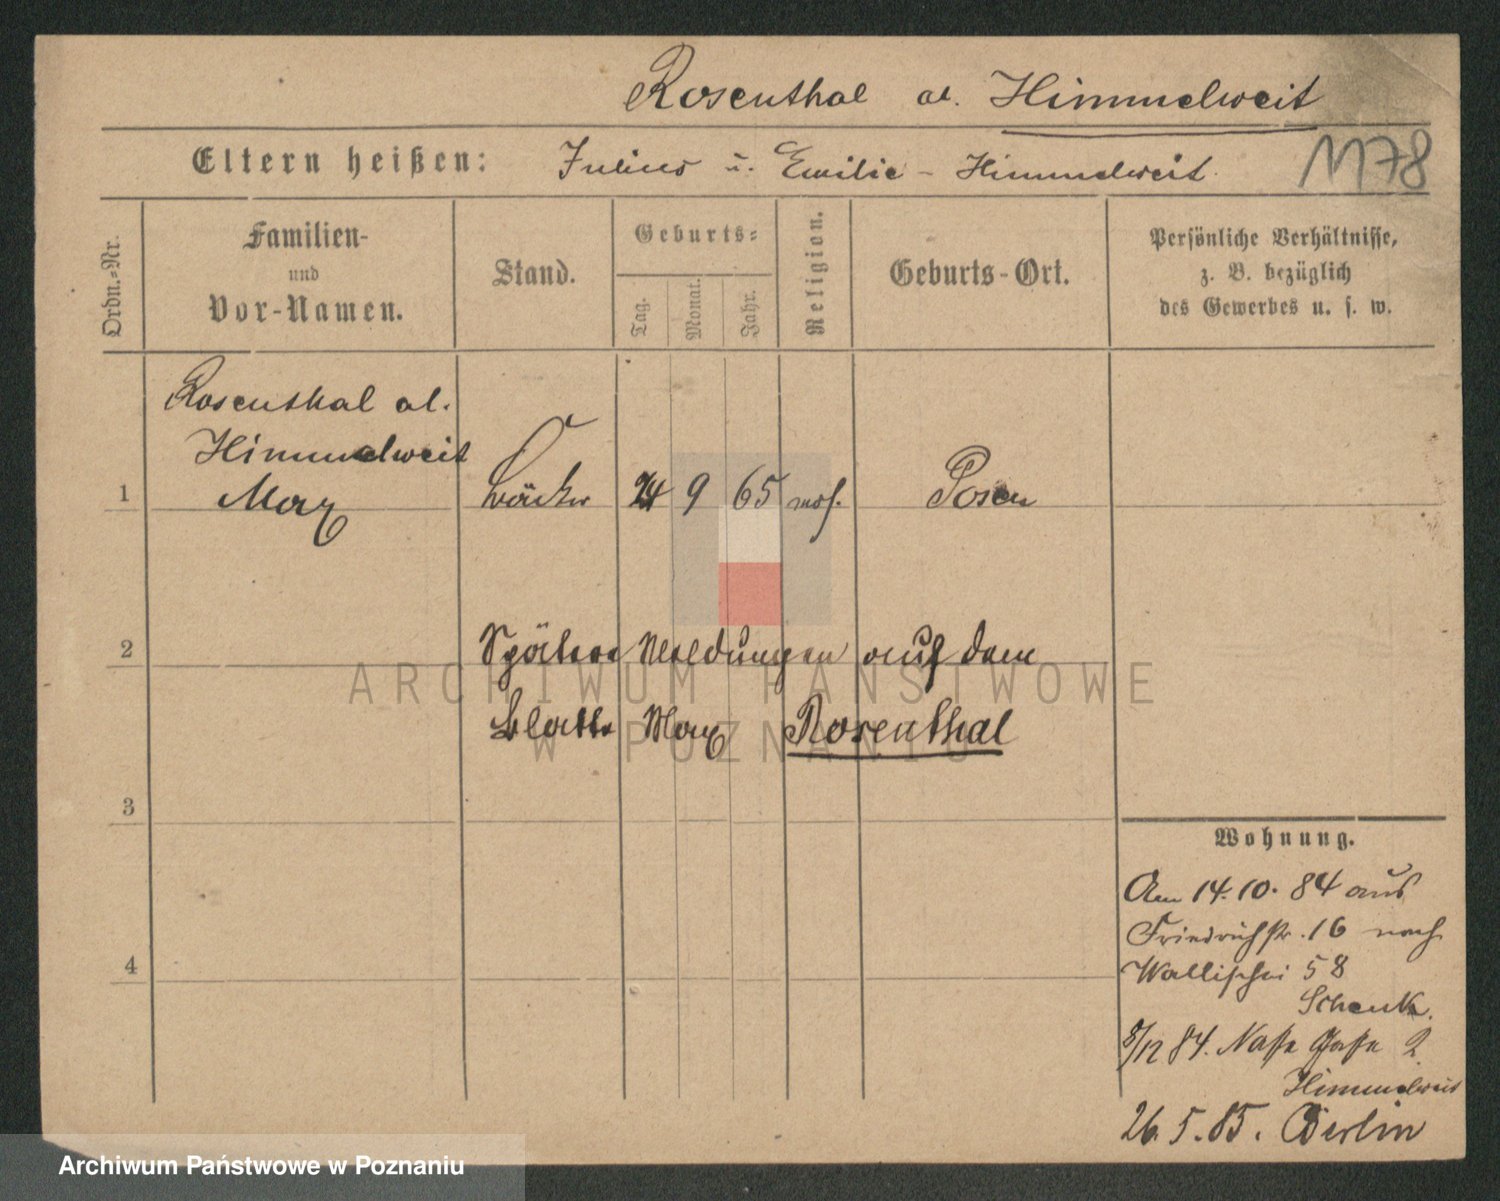 Rosenthal al. Himmelweit
Eltern heißen: Julius u. Emilie - Himmelweit.
1178
Ordn.-Nr.
Familien-
und
Vor-Namen.
Stand.
Geburts-
Tag.
Monat.
Jahr.
Religion.
Geburts-Ort.
Persönliche Verhältnisse,
z. B. bezüglich
des Gewerbes u. s. w.
Rosenthal al.
Himmelweit
1 Max 24 9 65 mos. Posen
2 Spätere Meldungen auf dem
Blatte Max Rosenthal
3
4
Wohnung.
Am 14.10.84 aus
Friedrichstr. 16 nach
Wallischei 58
Schenk.
8/12 84. Nasse Gasse 2
Himmelweit
26.5.85. Berlin
ARCHIWUM PAŃSTWOWE
W POZNANIU
Archiwum Państwowe w Poznaniu